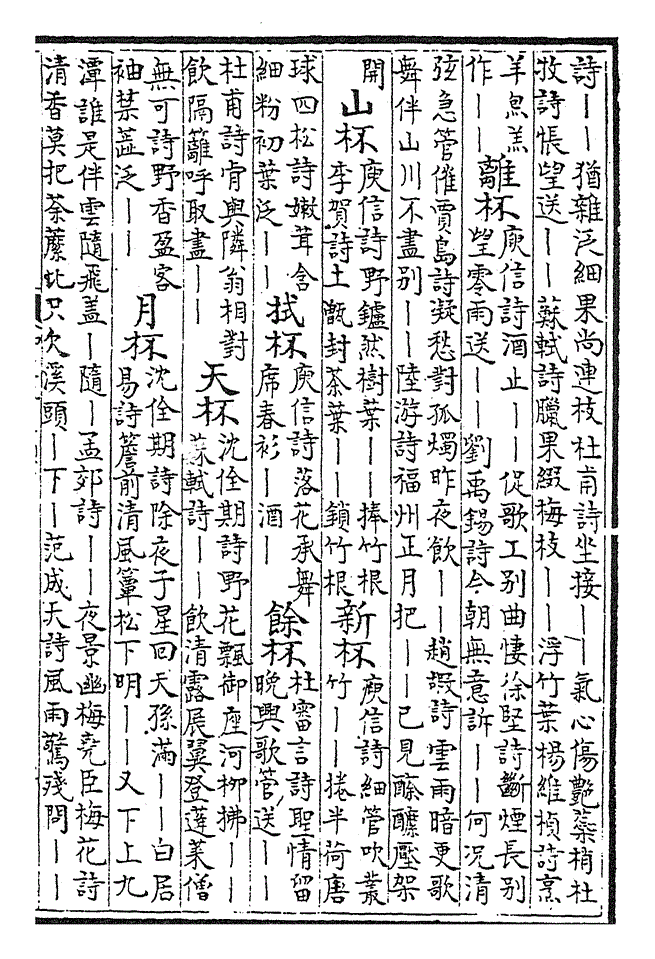 詩——猶雜泛細果尚連枝杜甫詩坐接——氣心傷艷蘂梢杜
牧詩悵望送——蘇軾詩臘果綴梅枝——浮竹葉楊維楨詩烹
羊炰羔
作——
離杯
庾信詩酒止——促歌工别曲悽徐堅詩斷煙長别
望零雨送——劉禹錫詩今朝無意訴——何况清
弦急管催賈島詩凝愁對孤燭昨夜飲——趙嘏詩雲雨暗更歌
舞伴山川不盡别——陸游詩福州正月把——已見酴醿壓架
開
山杯
庾信詩野鑪然樹葉——捧竹根
李賀詩土甑封茶葉——鎖竹根
新杯
庾信詩細管吹叢
竹——捲半荷唐
球四松詩嫩茸含
細粉初葉泛——
拭杯
庾信詩落花承舞
席春衫—酒—
餘杯
杜審言詩聖情留
晚興歌管送——
杜甫詩肯與隣翁相對
飲隔籬呼取盡——
天杯
沈佺期詩野花飄御座河柳拂——
蘇軾詩——飲清露展翼登蓬萊僧
無可詩野香盈客
袖禁蘂泛——
月杯
沈佺期詩除夜子星回天孫滿——白居
易詩簷前清風簟松下明——又下上九
潭誰是伴雲隨飛盖—隨—孟郊詩——夜景幽梅堯臣梅花詩
清香莫把荼蘼比只欠溪頭—下—范成大詩風雨驚殘問——